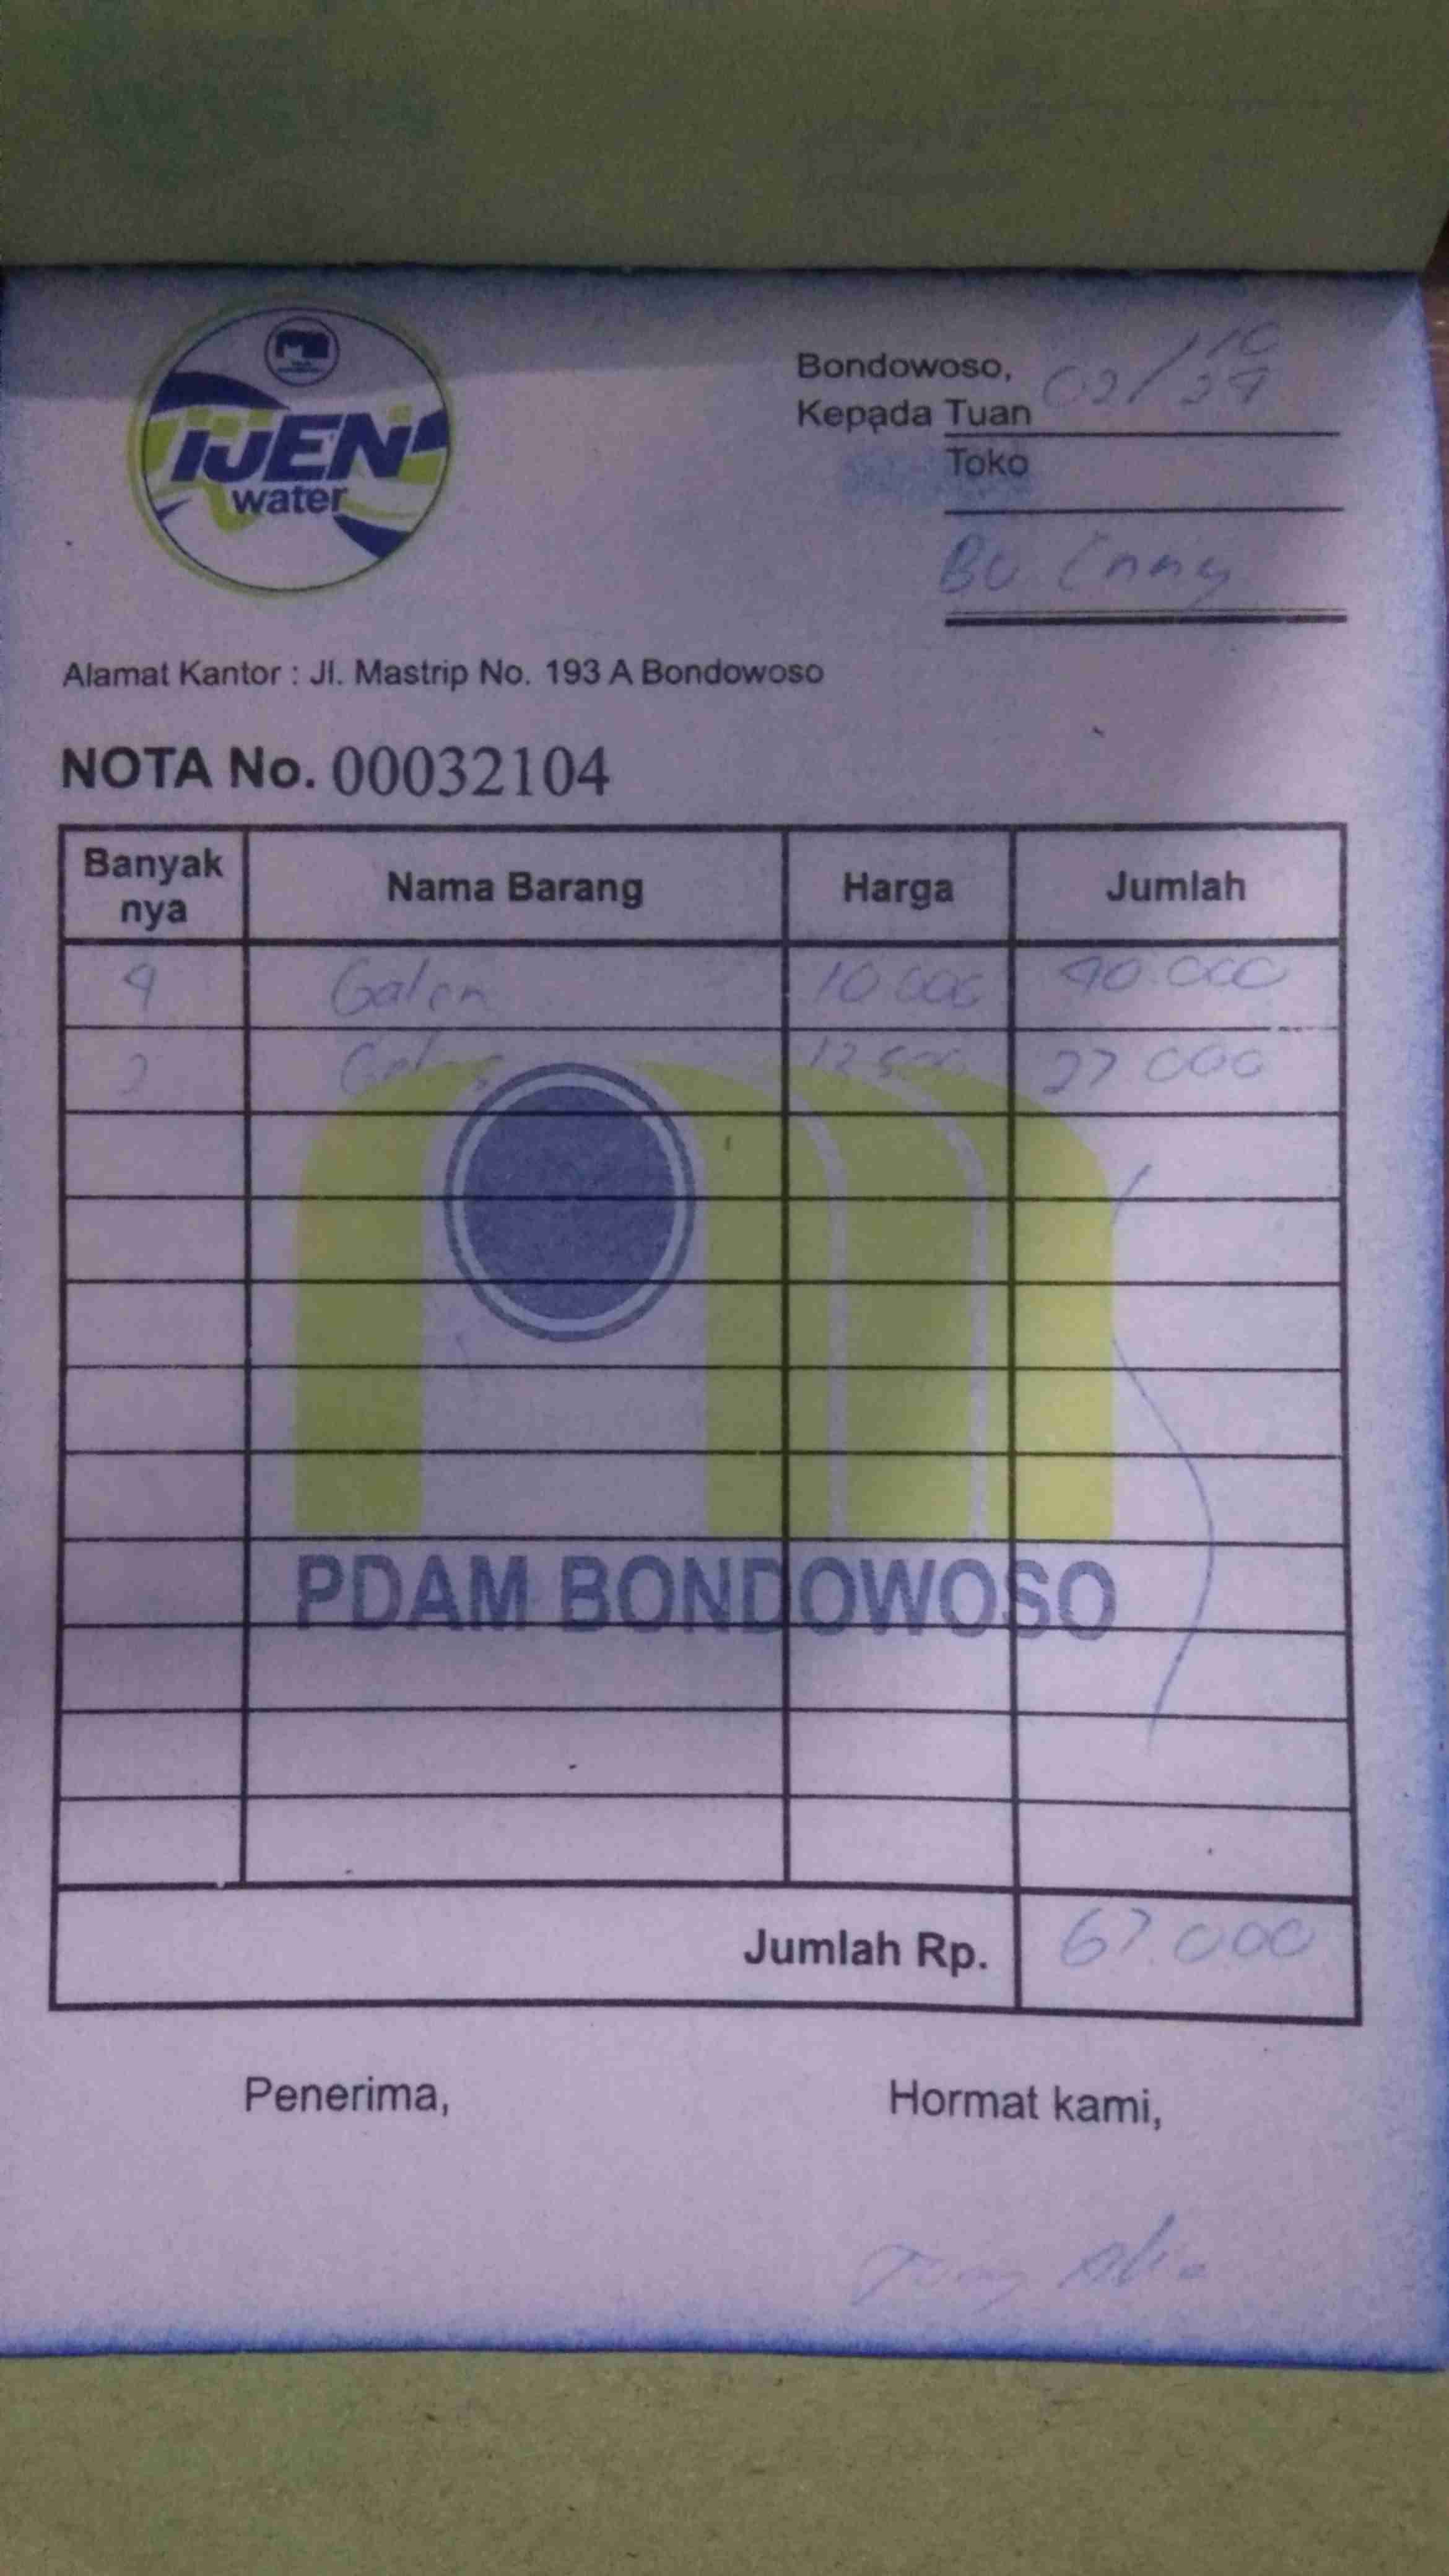 IJEN
water
Bondowoso, 02/10 24
Kepada Tuan
Toko
Bu Enny
Alamat Kantor : Jl. Mastrip No. 193 A Bondowoso
NOTA No. 00032104
Banyak nya Nama Barang Harga Jumlah
4 Galon 10.000 40.000
2 Gelas 27 000
PDAM BONDOWOSO
Jumlah Rp. 67.000
Penerima, Hormat kami,